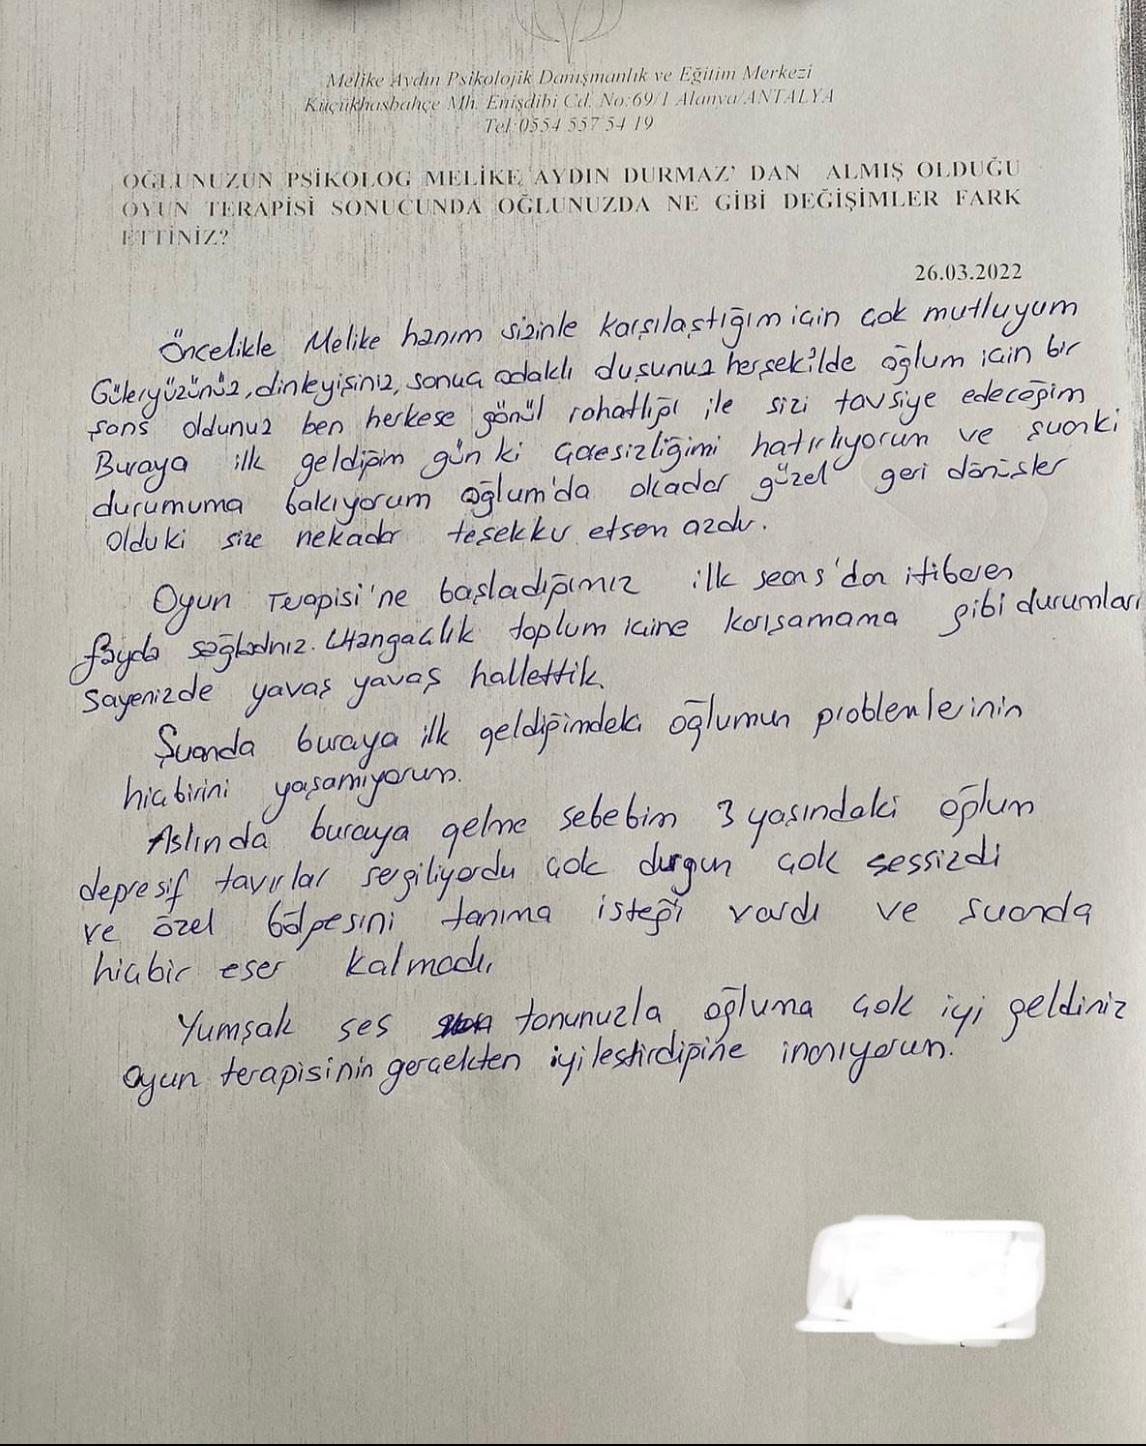 Melike Aydın Psikolojik Danışmanlık ve Eğitim Merkezi
Küçükhasbahçe Mh. Enişdibi Cd. No:69/1 Alanya/ANTALYA
Tel:0554 557 54 19
OĞLUNUZUN PSİKOLOG MELİKE AYDIN DURMAZ' DAN ALMIŞ OLDUĞU
OYUN TERAPİSİ SONUCUNDA OĞLUNUZDA NE GİBİ DEĞİŞİMLER FARK
ETTİNİZ?
26.03.2022
Öncelikle Melike hanım sizinle karşılaştığım için çok mutluyum
Güleryüzünüz, dinleyişiniz, sonuç odaklı duşunuz herşekilde oğlum için bir
şans oldunuz ben herkese gönül rahatlığı ile sizi tavsiye edeceğim
Buraya ilk geldiğim gün ki çaresizliğimi hatırlıyorum ve şuanki
durumuma bakıyorum oğlum'da okadar güzel geri dönüşler
Olduki size nekadar teşekkür etsem azdır.
Oyun Terapisi'ne başladığımız ilk seans'dan itibaren
fayda sağladınız. Utangaçlık toplum içine karışamama gibi durumları
Sayenizde yavaş yavaş hallettik.
Şuanda buraya ilk geldiğimdeki oğlumun problemlerinin
hiçbirini yaşamıyorum.
Aslında buraya gelme sebebim 3 yaşındaki oğlum
depresif tavırlar sergiliyordu çok durgun çok sessizdi
ve özel bölgesini tanıma isteği vardı ve şuanda
hiçbir eser kalmadı.
Yumşak ses tonunuzla oğluma çok iyi geldiniz
Oyun terapisinin gerçekten iyileştirdiğine inanıyorum.